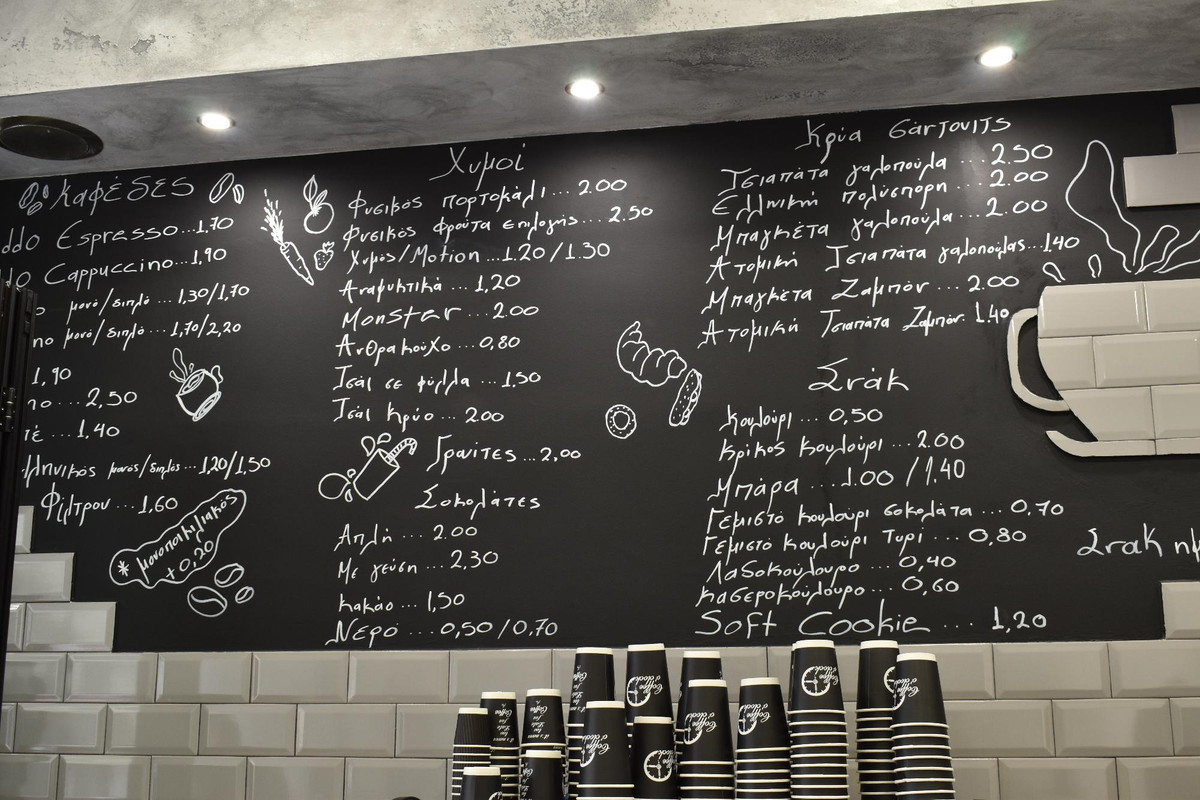 Καφέδες
ddo Espresso...1,70
do Cappuccino...1,90
μονό/διπλό ... 1,30/1,70
no μονό/διπλό ... 1,70/2,20
1,90
το ... 2,50
τέ ... 1,40
λληνικός μονός/διπλός ... 1,20/1,50
Φίλτρου ... 1,60
* μονοποικιλιακός
+0,20
Χυμοί
Φυσικός πορτοκάλι ... 2.00
Φυσικός φρούτα επιλογής ... 2.50
Χυμός/Motion ... 1.20/1.30
Αναψυκτικά ... 1,20
Monster ... 2.00
Ανθρακούχο ... 0,80
Τσάι σε φύλλα ... 1,50
Τσάι κρύο ... 2.00
Γρανίτες ... 2,00
Σοκολάτες
Απλή ... 2.00
Με γεύση ... 2,30
κακάο ... 1,50
Νερό .... 0,50/0,70
Κρύα σάντουιτς
Τσιαπάτα γαλοπούλα ... 2.50
Ελληνική πολύσπορη ... 2.00
Μπαγκέτα γαλοπούλα ... 2.00
Ατομική Τσιαπάτα γαλοπούλας ... 1,40
Μπαγκέτα Ζαμπόν ... 2.00
Ατομική Τσιαπάτα Ζαμπόν. 1,40
Σνάκ
Κουλούρι ... 0,50
Κρίκος Κουλούρι ... 2.00
Μπάρα ... 1.00 /1,40
Γεμιστό κουλούρι σοκολάτα ... 0,70
Γεμιστό κουλούρι Τυρί ... 0,80
Λαδοκούλουρο ... 0,40
Κασεροκούλουρο ... 0,60
Soft Cookie .... 1,20
Σνακ ημ
Coffee o'clock
Coffee o'clock
Coffee o'clock
Coffee o'clock
Coffee o'clock
Coffee o'clock
Coffee o'clock